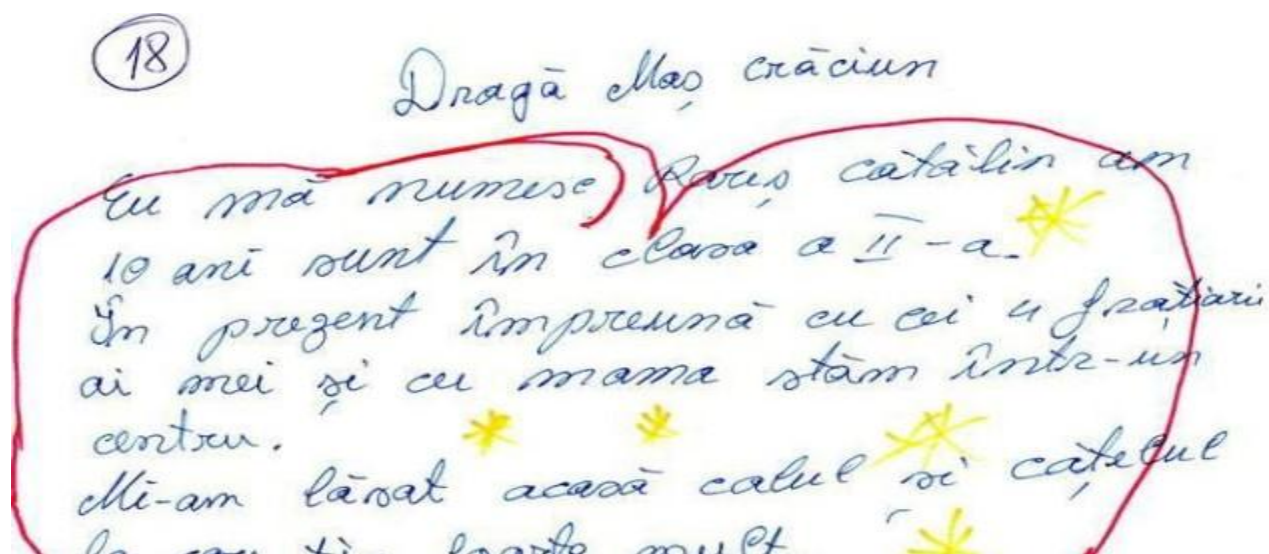 18
Dragă Maș crăciun
Eu mă numesc Rareș cătălin am
10 ani sunt în clasa a II-a.
În prezent împreună cu cei 4 frățiari
ai mei și cu mama stăm într-un
centru.
Mi-am lăsat acasă calul și cățelul
la care țin foarte mult